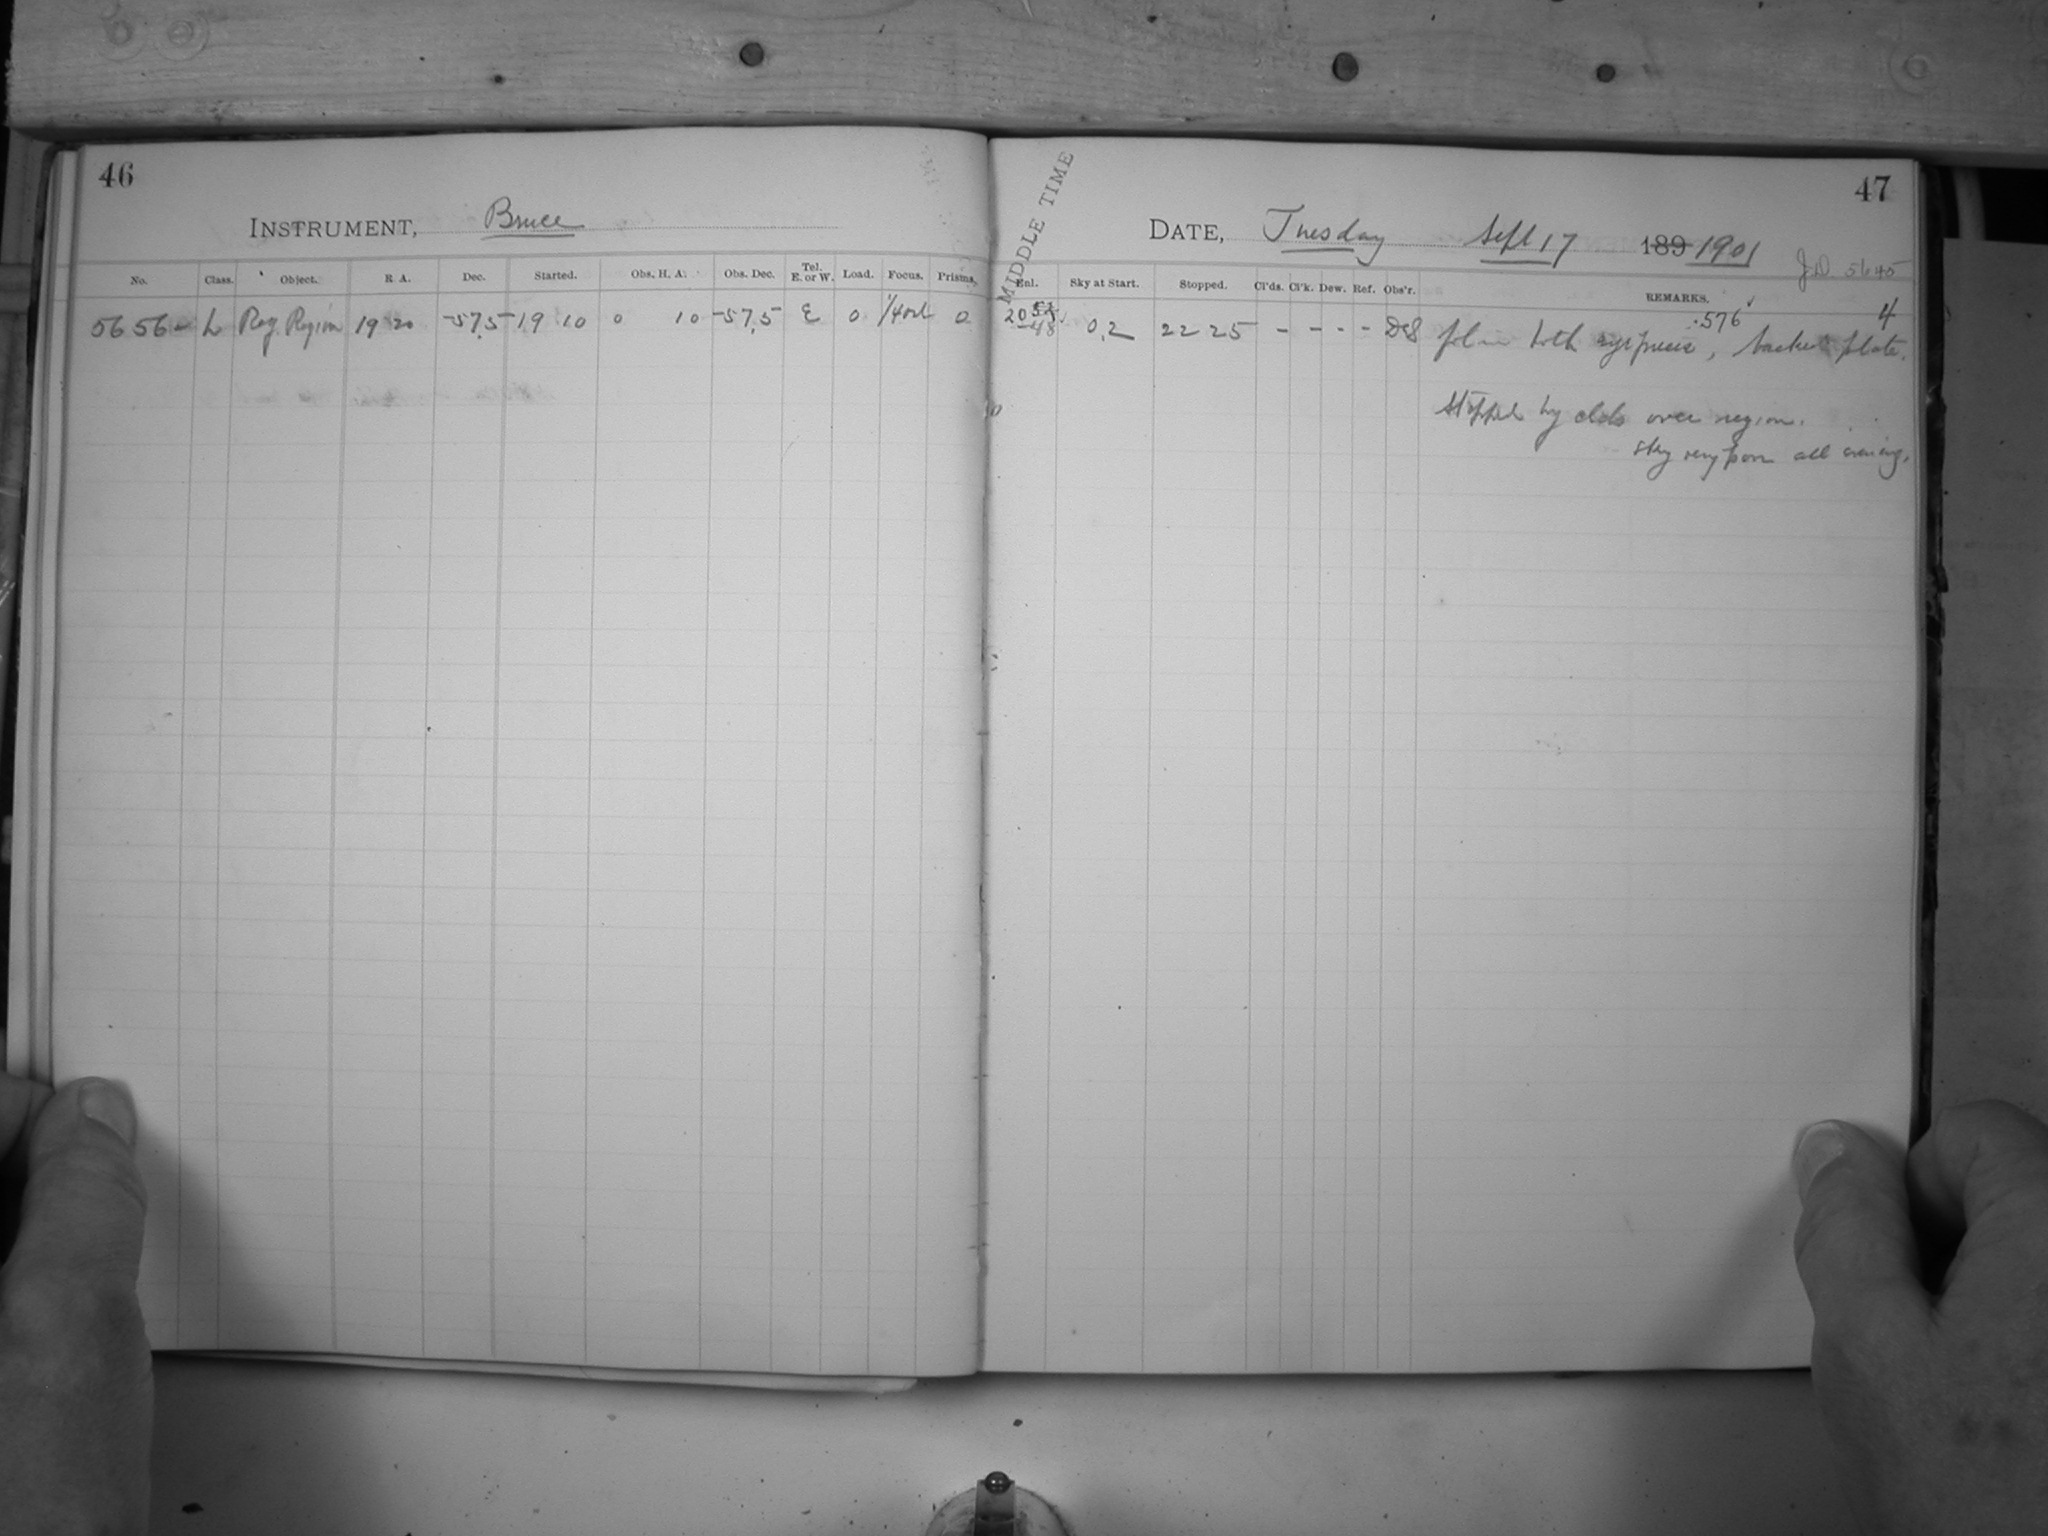 46
INSTRUMENT, Bruce
No. Class. Object. R A. Dec. Started. Obs. H. A. Obs. Dec. Tel. E. or W. Load. Focus. Prisms.
5656 L Reg. Region 19 20 -57.5 19 10 0 10 -57.5 E 0 0
47
MIDDLE TIME
DATE, Tuesday Sept 17 189 1901
J.D. 5645
Enl. Sky at Start. Stopped. Cl'ds. Cl'k. Dew. Ref. Obs'r. REMARKS.
.576 4
20 -48 0.2 22 25 - - - - both eyepieces, backed plate.
Stopped by clds over region.
Sky very poor all evening.